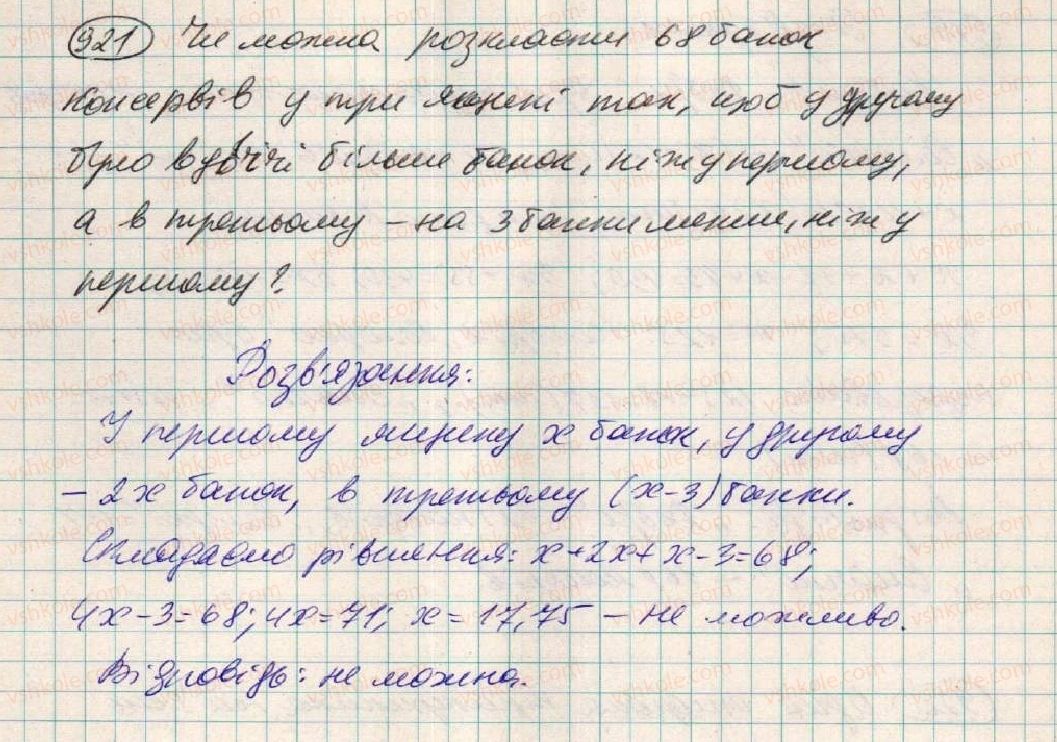 921 Чи можна розкласти 68 банок
консервів у три ящики так, щоб у другому
було вдвічі більше банок, ніж у першому,
а в третьому – на 3 банки менше, ніж у
першому?
Розв'язання:
У першому ящику x банок, у другому
– 2x банок, в третьому (x-3) банки.
Складаємо рівняння: x+2x+x-3=68;
4x-3=68; 4x=71; x=17,75 – не можливо.
Відповідь: не можна.